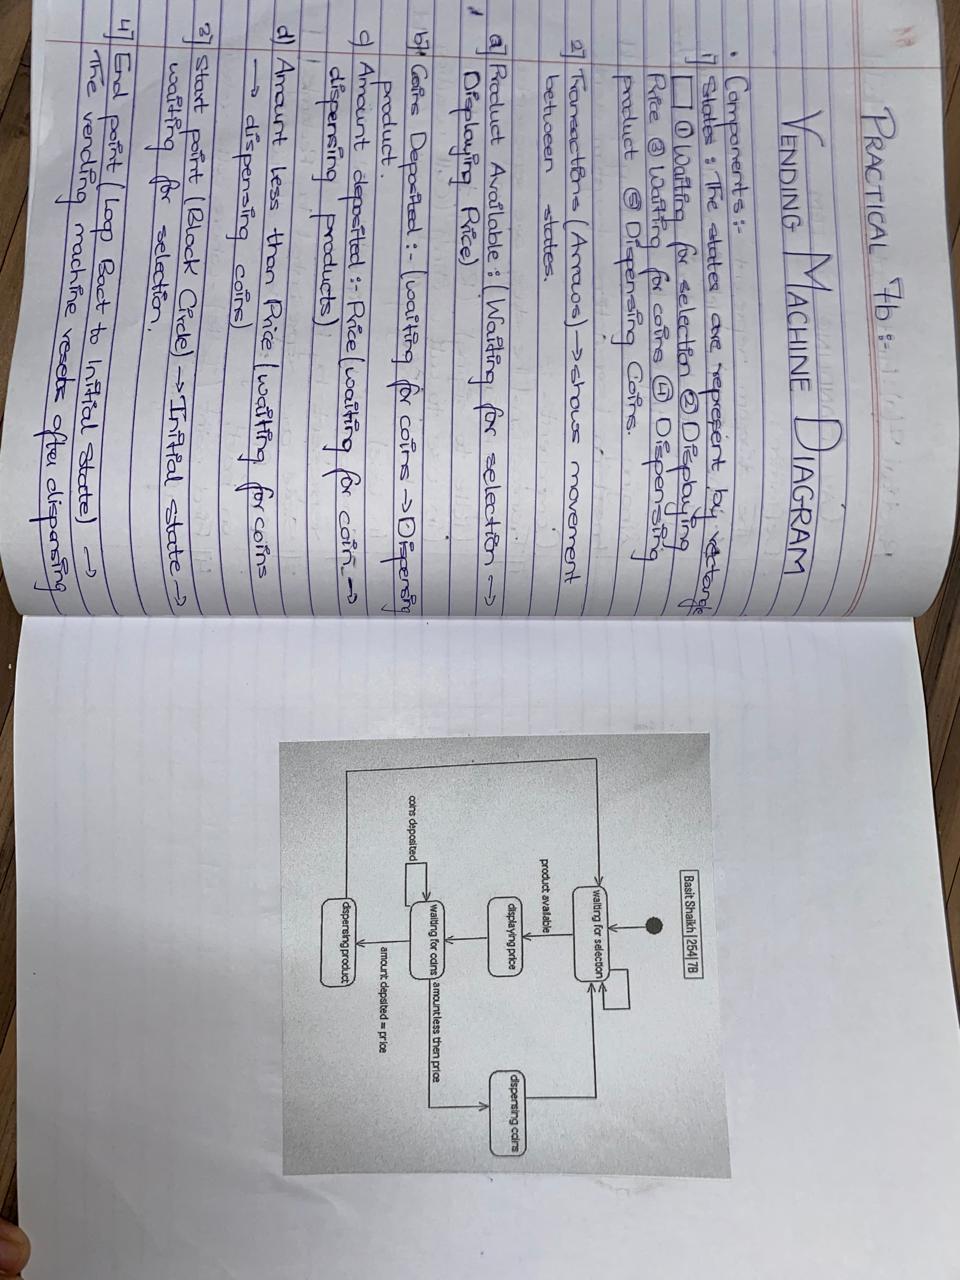 PRACTICAL 7b :-
VENDING MACHINE DIAGRAM
• Components :-
1] States : The states are represent by rectangle
① Waiting for selection ② Displaying
Price ③ Waiting for coins ④ Dispensing
product ⑤ Dispensing Coins.
2] Transactions (Arrows) → shows movement
between states.
a] Product Available : (Waiting for selection →
Displaying Price)
b] Coins Deposited :- (waiting for coins → Dispensing
product.
c] Amount deposited :- Price (waiting for coin →
dispensing products)
d] Amount Less than Price : (waiting for coins
→ dispensing coins)
3] Start point (Black Circle) → Initial state →
waiting for selection.
4] End point (Loop Bact to Initial state) →
The vending machine resets after dispensing
Basit Shaikh | 254 | 7B
waiting for selection
product available
displaying price
dispensing coins
coins deposited
waiting for coins
amount less then price
amount deposited = price
dispensing product